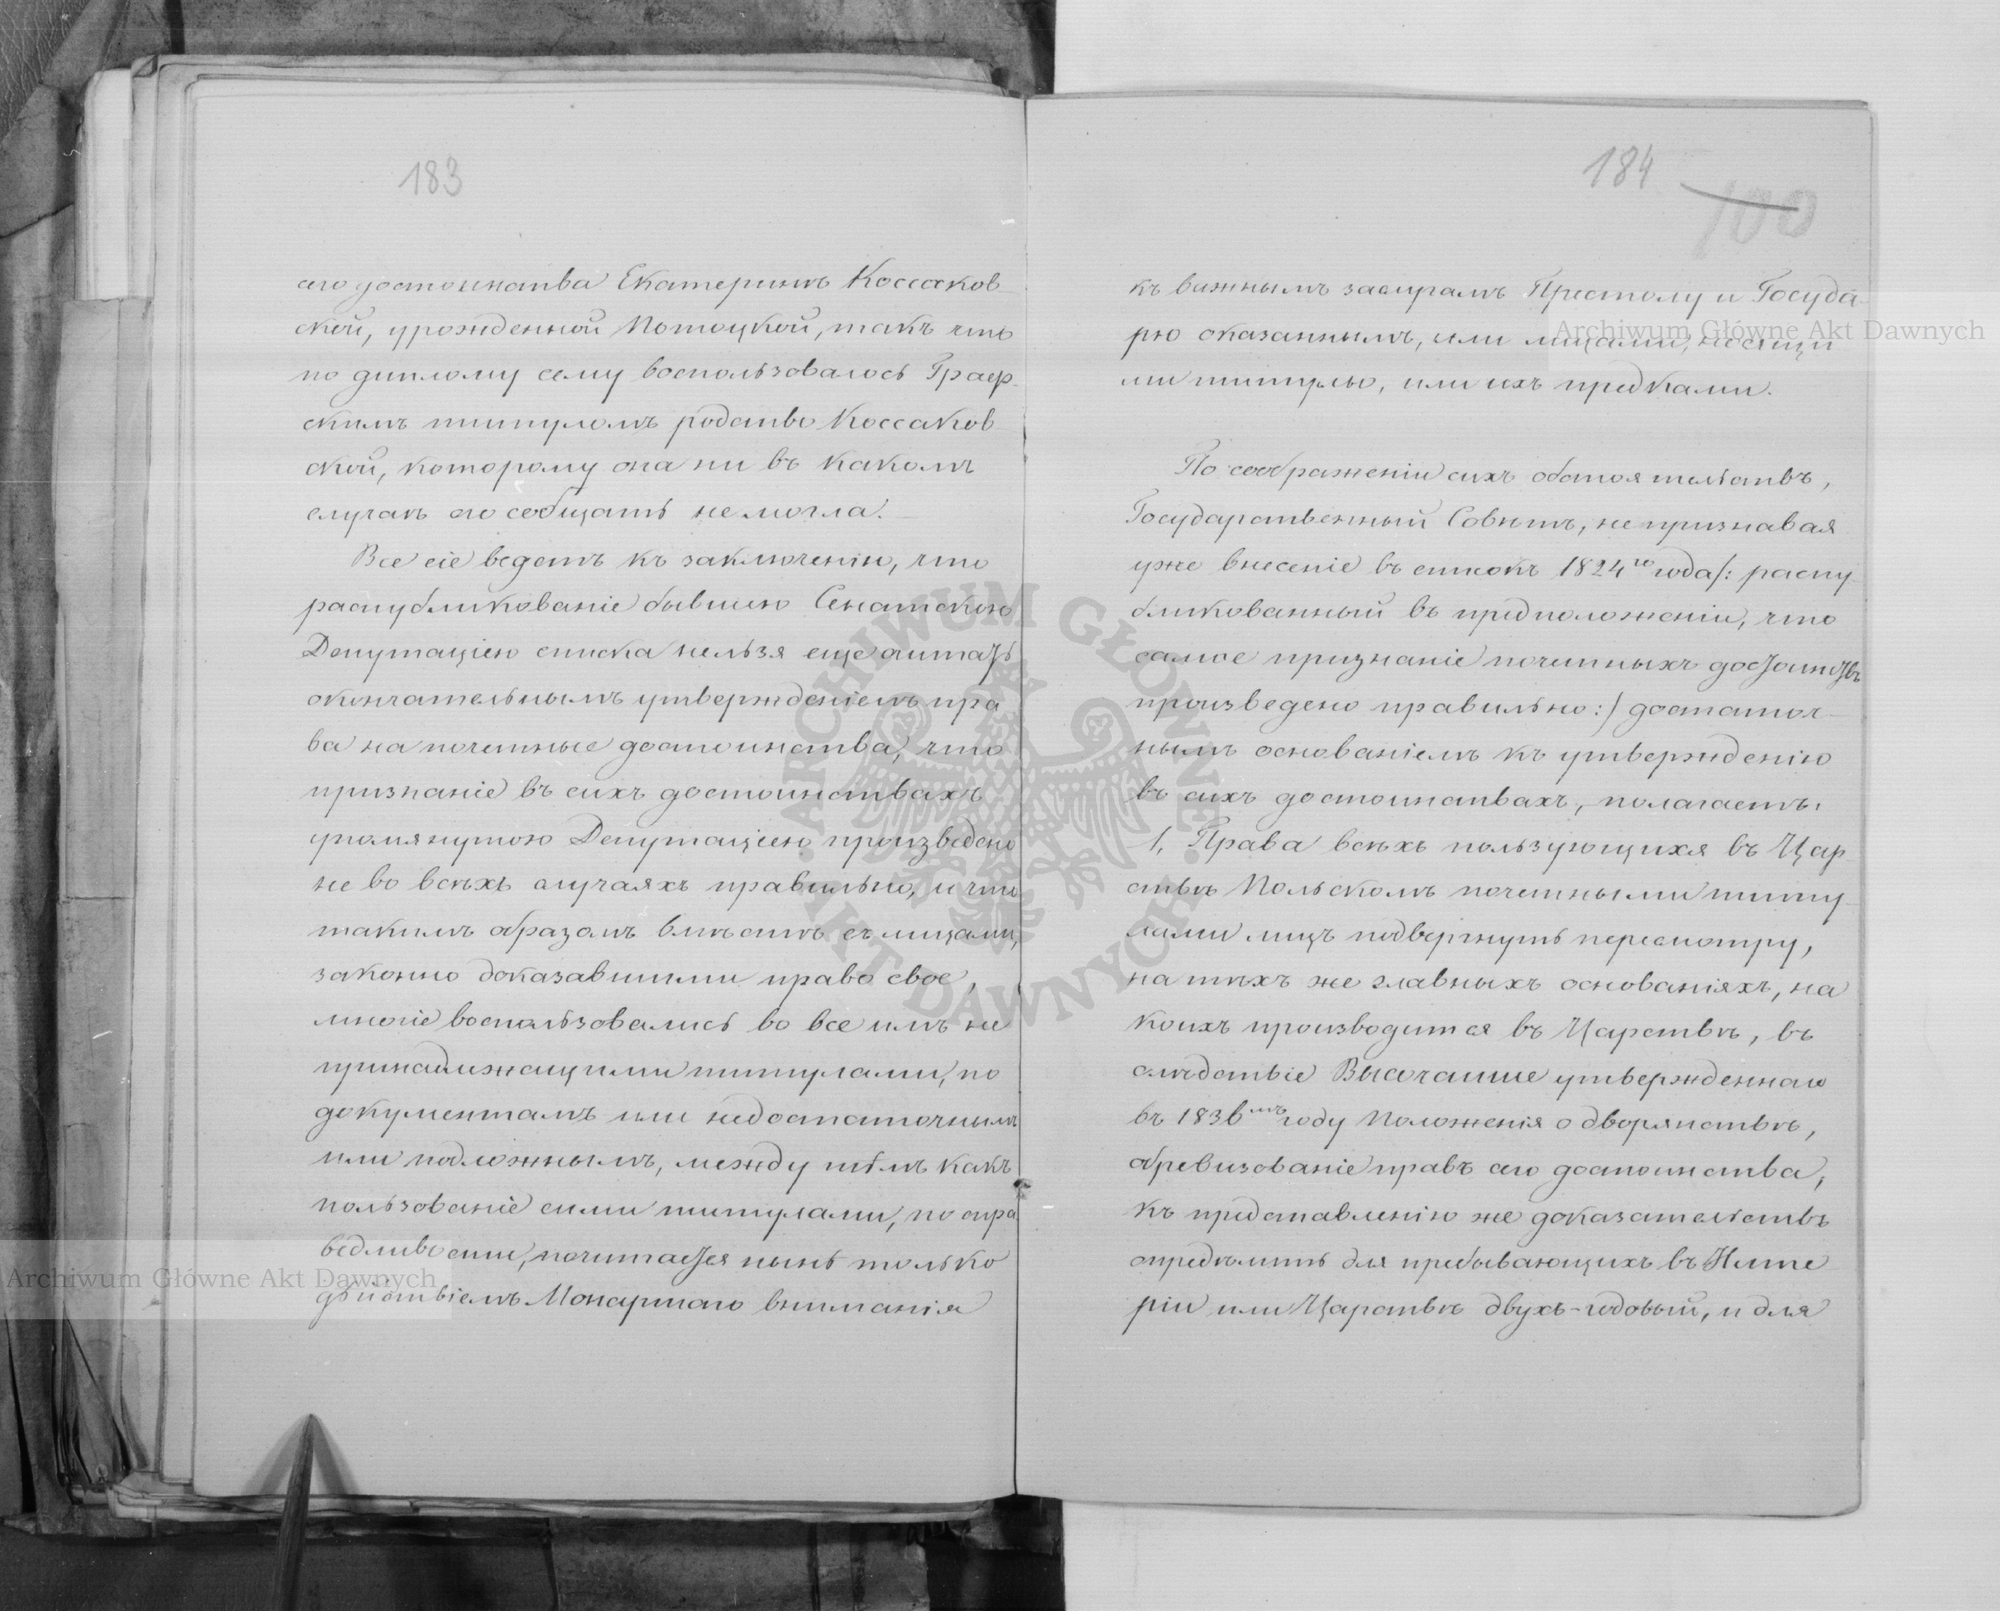 183
сего достоинства Екатеринѣ Коссаков
ской, урожденной Потоцкой, такъ что
по диплому сему воспользовалось Граф-
скимъ титуломъ родство Коссаков
ской, которому она ни въ какомъ
случаѣ его сообщать не могла.
Все сіе ведетъ къ заключенію, что
распубликованіе бывшею Сенатскою
Депутаціею списка нельзя еще считать
окончательнымъ утвержденіемъ пра
ва на почетные достоинства, что
признаніе въ сихъ достоинствахъ
упомянутою Депутаціею произведено
не во всѣхъ случаяхъ правильно, и что
такимъ образомъ вмѣстѣ съ лицами,
законно доказавшими право свое,
многіе воспользовались во все имъ не
принадлежащими титулами, по
документамъ или недостаточнымъ
или подложнымъ, между тѣмъ какъ
пользованіе сими титулами, по спра
ведливости, почитается нынѣ только
дѣйствіемъ Монаршаго вниманія
184
100
къ важнымъ заслугамъ Престолу и Госуда-
рю оказаннымъ, или лицами, носящи
ми титулы, или ихъ предками.
По соображеніи сихъ обстоятельствъ,
Государственный Совѣтъ, не признавая
уже внесеніе въ списокъ 1824го года /: распу
бликованный въ предположеніи, что
самое признаніе почетныхъ достоинствъ
произведено правильно :/ достаточ-
нымъ основаніемъ къ утвержденію
въ сихъ достоинствахъ, полагаетъ:
1, Права всѣхъ пользующихся въ Цар-
ствѣ Польскомъ почетными титу
лами лицъ подвергнуть пересмотру,
на тѣхъ же главныхъ основаніяхъ, на
коихъ производится въ Царствѣ, въ
слѣдствіе Высочайше утвержденнаго
въ 1836мъ году Положенія о дворянствѣ,
обревизованіе правъ сего достоинства,
къ представленію же доказательствъ
опредѣлить для пребывающихъ въ Импе
ріи или Царствѣ двухъ-годовый, и для
Archiwum Główne Akt Dawnych
Archiwum Główne Akt Dawnych
ARCHIWUM GŁÓWNE · AKT DAWNYCH ·